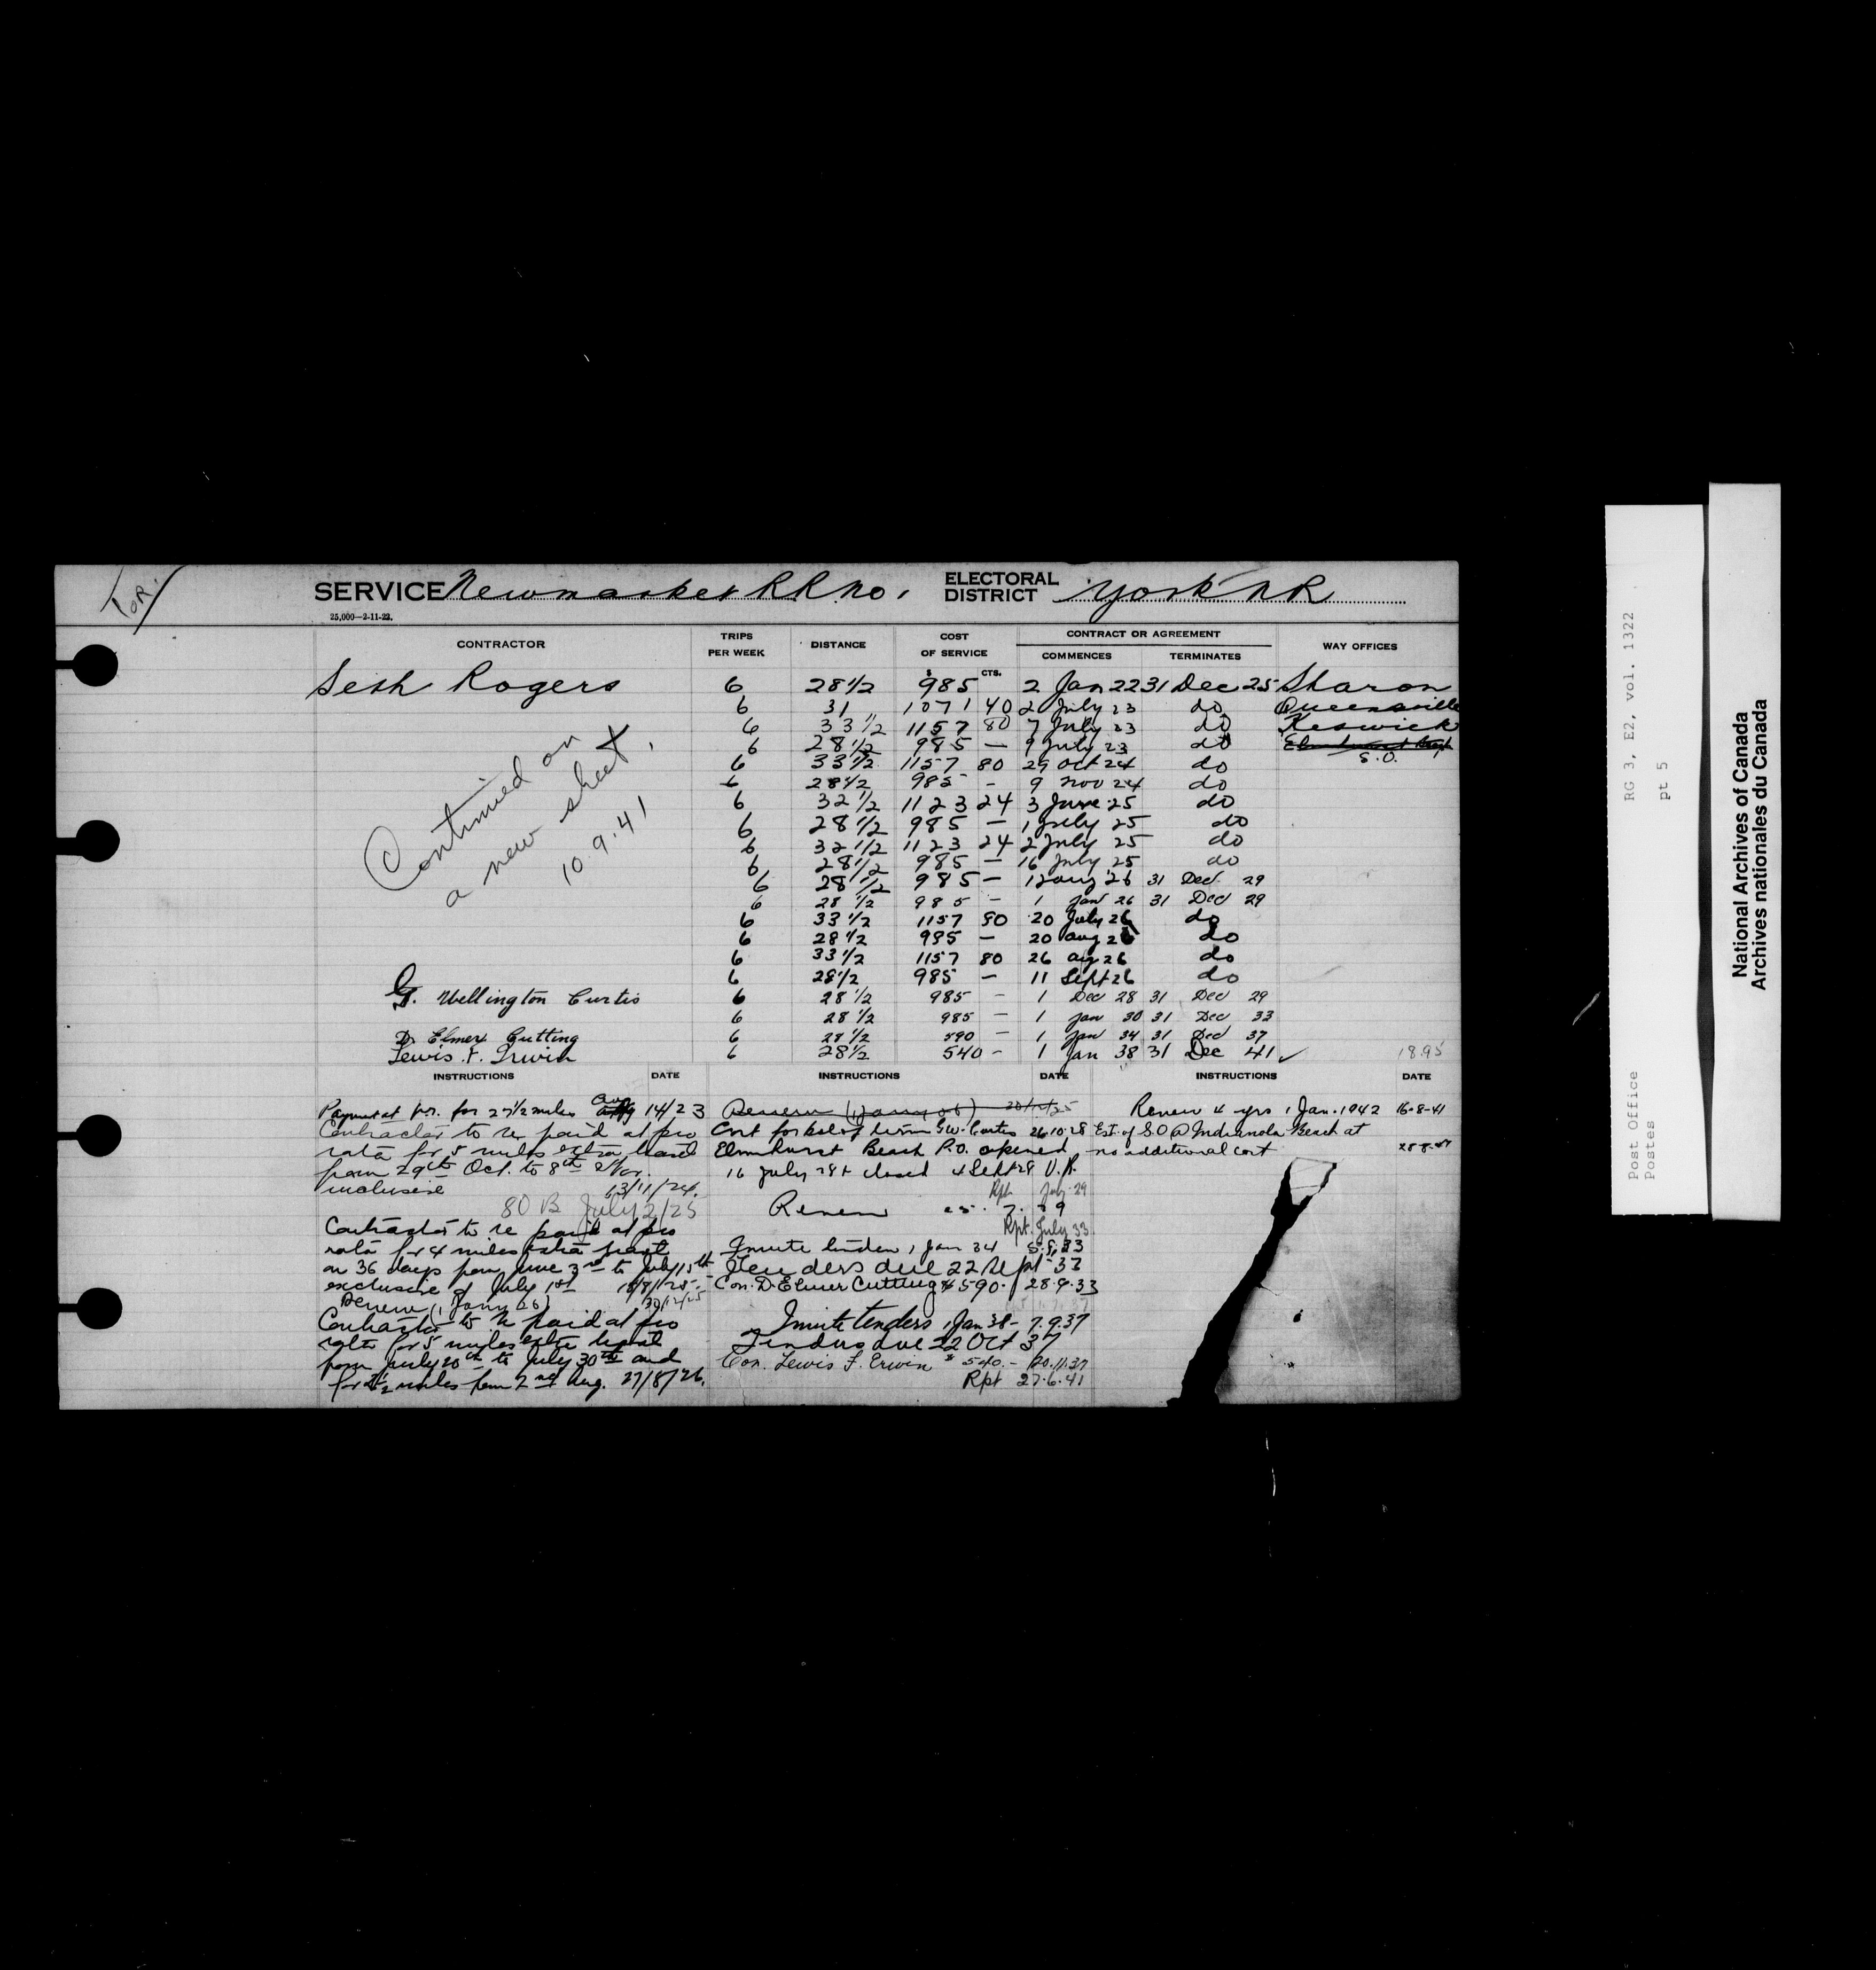 TOR.
SERVICE Newmarket R R no 1 ELECTORAL DISTRICT York N R
25,000—2-11-22.
CONTRACTOR TRIPS PER WEEK DISTANCE COST OF SERVICE CONTRACT OR AGREEMENT WAY OFFICES
$ CTS. COMMENCES TERMINATES
Seth Rogers 6 28 1/2 985 2 Jan 22 31 Dec 25 Sharon
6 31 1071 40 2 July 23 do Queensville
6 33 1/2 1157 80 7 July 23 do Keswick
6 28 1/2 985 — 9 July 23 do Elmhurst Beach
S.O.
6 33 1/2 1157 80 29 Oct 24 do
6 28 1/2 985 - 9 Nov 24 do
6 32 1/2 1123 24 3 June 25 do
6 28 1/2 985 — 1 July 25 do
6 32 1/2 1123 24 2 July 25 do
6 28 1/2 985 — 16 July 25 do
6 28 1/2 985 — Aug 26 31 Dec 29
6 28 1/2 985 - 1 Jan 26 31 Dec 29
6 33 1/2 1157 80 20 July 26 do
6 28 1/2 985 — 20 Aug 26 do
6 33 1/2 1157 80 26 Aug 26 do
6 28 1/2 985 — 11 Sept 26 do
G. Wellington Curtis 6 28 1/2 985 - 1 Dec 28 31 Dec 29
6 28 1/2 985 — 1 Jan 30 31 Dec 33
D. Elmer Cutting 6 28 1/2 590 — 1 Jan 34 31 Dec 37
Lewis F. Irwin 6 28 1/2 540 - 1 Jan 38 31 Dec 41 ✓ 18.95
Continued on
a new sheet.
10.9.41
INSTRUCTIONS DATE INSTRUCTIONS DATE INSTRUCTIONS DATE
Payment at p.r. for 27 1/2 miles Aug 14/23
Contractor to be paid at pro
rata for 5 miles extra travel
from 29th Oct. to 8th Nov.
inclusive 13/11/24.
80 B July 2/25
Contractor to be paid at pro
rata for 4 miles extra travel
on 36 days from June 3rd to July 15th
exclusive of July 1st 18/8/25.
Renew (1 Jany 26) 30/12/25
Contractor to be paid at pro
rata for 5 miles extra travel
from July 20th to July 30th and
for 2 1/2 miles from 2nd Aug. 27/8/26.
Renew (1 Jany 26) 30/12/25
Cont for bal of term G.W. Curtis 26.10.28
Elmhurst Beach P.O. opened
16 July 28 + closed 4 Sept 28 V.R.
Rpt July 29
Renew 25. 7. 29
Rpt. July 33
Invite tenders 1 Jan 34 5.8.33
Tenders due 22 Sept 33
Con. D. Elmer Cutting $590. 28.9.33
Invite tenders 1 Jan 38 - 7.9.37
Tenders due 22 Oct 37
Con. Lewis F. Erwin $540.- 20.11.37
Rpt 27.6.41
Renew 4 yrs 1 Jan. 1942 16-8-41
Est. of S.O @ Indianola Beach at
no additional cost
Post Office RG 3, E2, vol. 1322
Postes pt 5
National Archives of Canada
Archives nationales du Canada